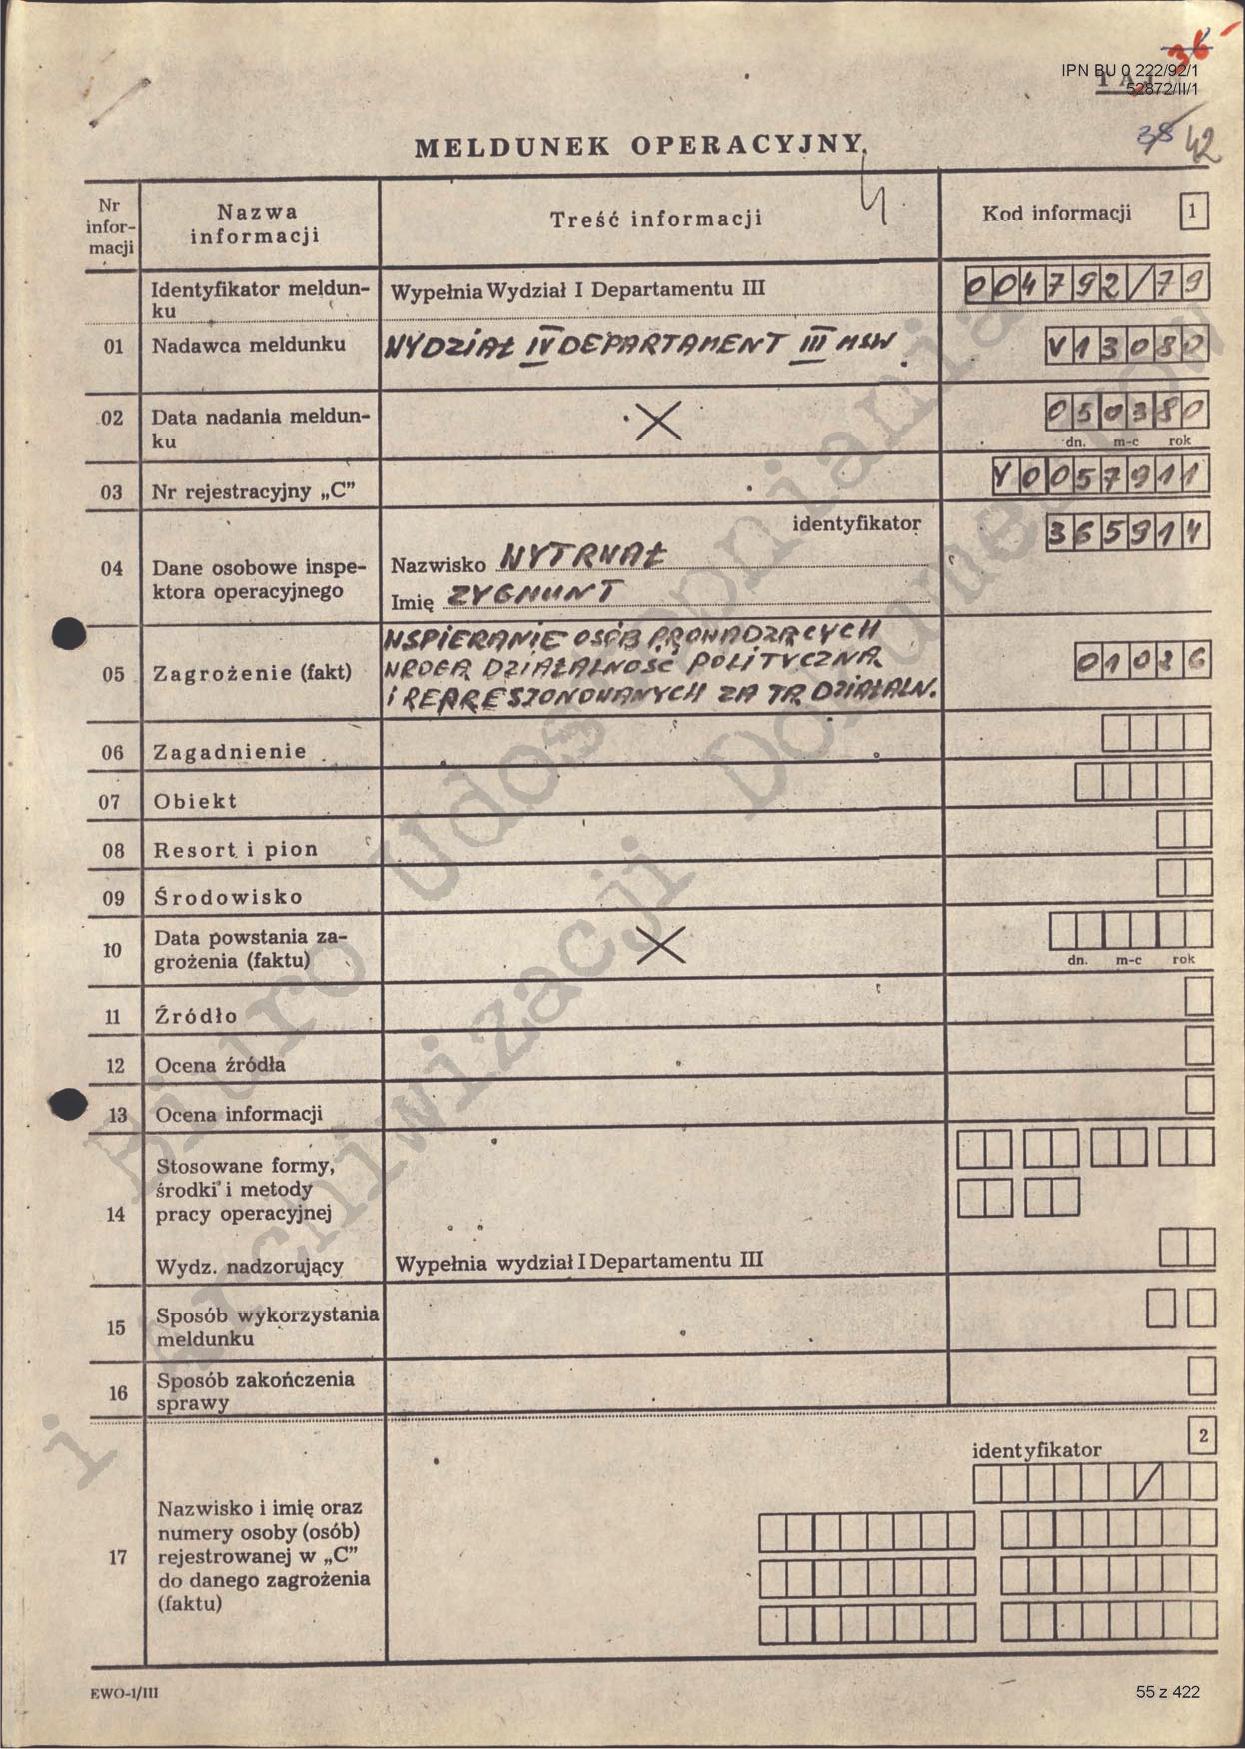 36
IPN BU 0 222/92/1
52872/II/1
38 42
MELDUNEK OPERACYJNY
Nr
infor-
macji
Nazwa
informacji
Treść informacji
Kod informacji
1
Identyfikator meldun-
ku
Wypełnia Wydział I Departamentu III
004792/79
01
Nadawca meldunku
WYDZIAŁ IV DEPARTAMENT III MSW
V13080
02
Data nadania meldun-
ku
050380
dn. m-c rok
03
Nr rejestracyjny „C”
Y0057911
04
Dane osobowe inspe-
ktora operacyjnego
identyfikator
365914
Nazwisko WYTRWAŁ
Imię ZYGMUNT
05
Zagrożenie (fakt)
WSPIERANIE OSÓB PROWADZĄCYCH
WROGĄ DZIAŁALNOŚĆ POLITYCZNĄ
I REPRESJONOWANYCH ZA TĄ DZIAŁALN.
01036
06
Zagadnienie
07
Obiekt
08
Resort i pion
09
Środowisko
10
Data powstania za-
grożenia (faktu)
dn. m-c rok
11
Źródło
12
Ocena źródła
13
Ocena informacji
14
Stosowane formy,
środki i metody
pracy operacyjnej
Wydz. nadzorujący
Wypełnia wydział I Departamentu III
15
Sposób wykorzystania
meldunku
16
Sposób zakończenia
sprawy
2
identyfikator
/
17
Nazwisko i imię oraz
numery osoby (osób)
rejestrowanej w „C”
do danego zagrożenia
(faktu)
EWO-1/III
55 z 422
Biuro Udostępniania
i Archiwizacji Dokumentów